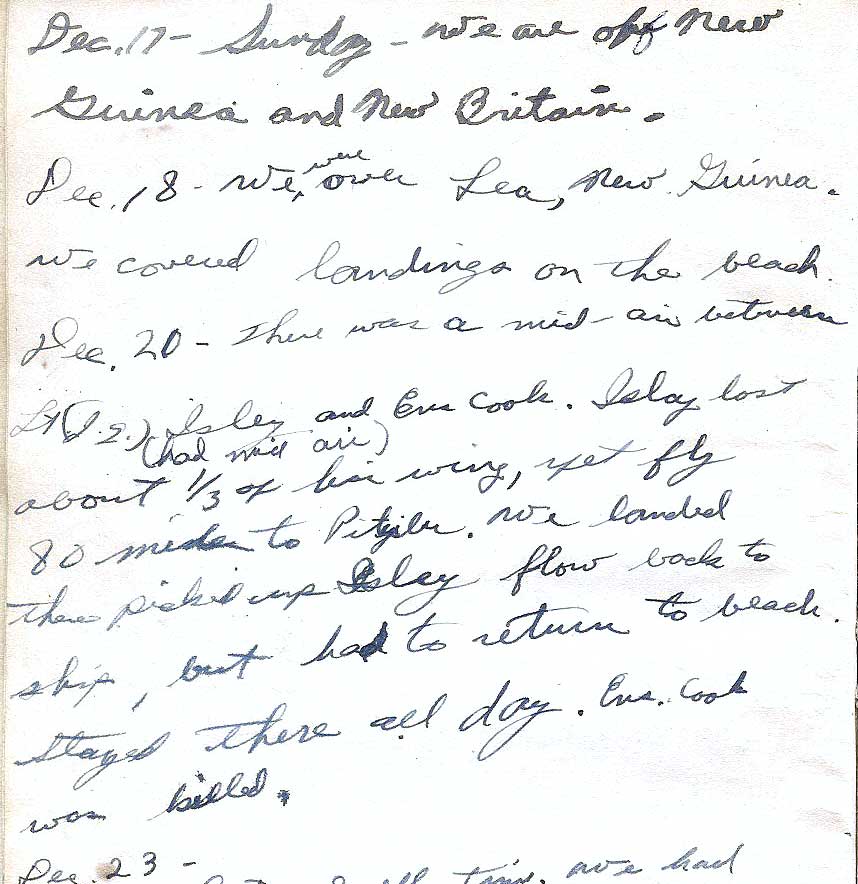 Dec. 17 - Sunday - we are off New
Guinea and New Britain.
Dec. 18 - We were over Lea, New Guinea.
we covered landings on the beach.
Dec. 20 - There was a mid-air between
Lt (J.G.) Islay and Ens Cook. Islay lost
(had mid air)
about 1/3 of his wing, yet fly
80 miles to We landed
there picked up Islay flow back to
ship, but had to return to beach.
Stayed there all day. Ens. Cook
was killed.
Dec. 23 -
time. we had